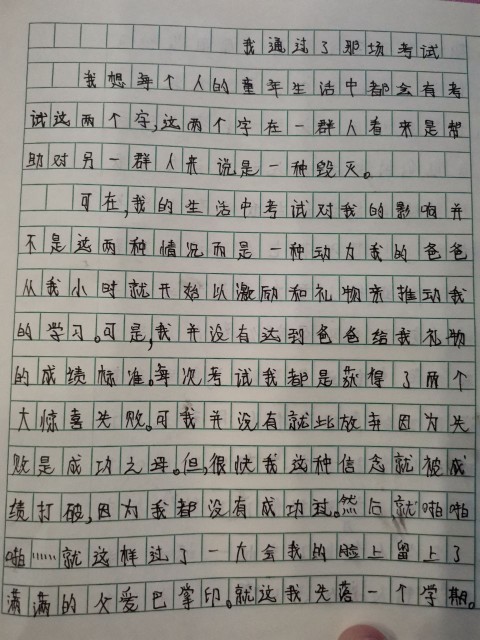 我通过了那场考试
我想每个人的童年生活中都会有考
试这两个字,这两个字在一群人看来是帮
助对另一群人来说是一种毁灭。
可在,我的生活中考试对我的影响并
不是这两种情况而是一种动力我的爸爸
从我小时就开始以激励和礼物来推动我
的学习。可是,我并没有达到爸爸给我礼物
的成绩标准。每次考试我都是获得了两个
大惊喜失败。可我并没有就此放弃因为失
败是成功之母。但,很快我这种信念就被成
绩打破,因为我都没有成功过。然后就啪啪
啪……就这样过了一大会我的脸上留上了
满满的父爱巴掌印。就这我失落一个学期。